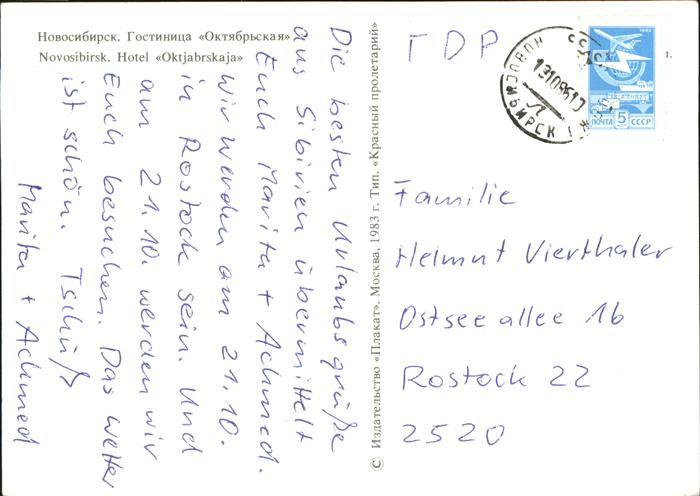 Новосибирск. Гостиница «Октябрьская»
Novosibirsk. Hotel «Oktjabrskaja»
Die besten Urlaubsgrüße
aus Sibirien übermittelt
Euch Marita + Achmed.
Wir werden am 21.10.
in Rostock sein. Und
am 21.10. werden wir
Euch besuchen. Das Wetter
ist schön. Tschüß
Marita + Achmed
© Издательство «Плакат». Москва, 1983 г. Тип. «Красный пролетарий»
ПОЧТА 5 СССР
Familie
Helmut Vierthaler
Ostseeallee 16
Rostock 22
2520